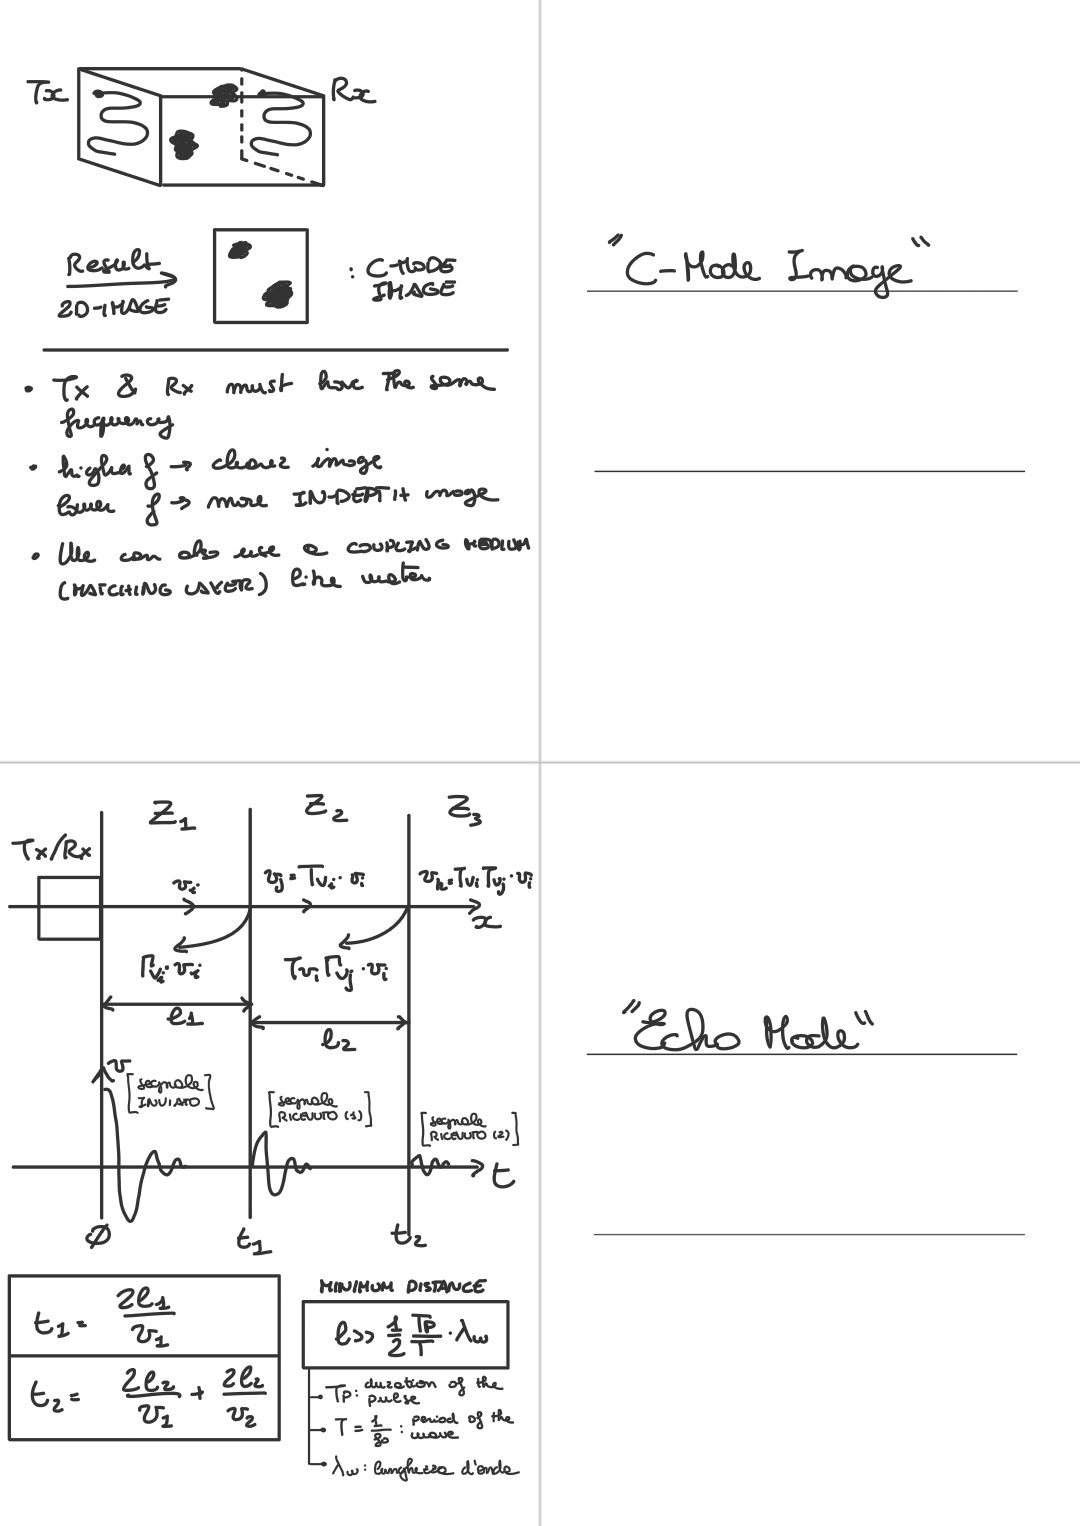 Tx
Rx
Result
2D-IMAGE
: C-MODE
IMAGE
"C-Mode Image"
• Tx & Rx must have the same
frequency
• higher f → clearer image
lower f → more IN-DEPTH image
• We can also use a COUPLING MEDIUM
(MATCHING LAYER) like water
Z1
Z2
Z3
Tx/Rx
vi
vj = Tvi · vi
vk = Tvi Tvj · vi
x
Γvi · vi
Tvi Γvj · vi
l1
l2
"Echo Mode"
v
[segnale
INVIATO]
[segnale
RICEVUTO (1)]
[segnale
RICEVUTO (2)]
t
Ø
t1
t2
MINIMUM DISTANCE
t1 = 2l1/v1
l >> 1/2 Tp/T · λw
t2 = 2l2/v1 + 2l2/v2
Tp: duration of the
pulse
T = 1/f0 : period of the
wave
λw : lunghezza d'onda